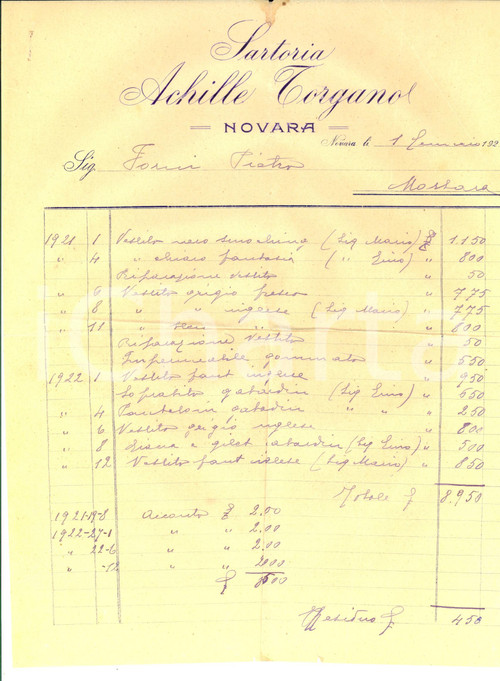 Sartoria
Achille Torgano
NOVARA
Novara li 1 Gennaio 192
Sig. Forni Pietro
1921 1 Vestito nero smoching (Sig Mario) £ 1.150
" 4 " chiaro fantasia ( " Lino) " 800
Riparazione vestito " 50
" 6 Vestito grigio fresco " 775
" 8 " " inglese (Sig Mario) " 775
" 11 " " " 600
Riparazione Vestito " 50
Impermeabile gommato " 550
1922 1 Vestito fant inglese " 950
Soprabito gabardin (Sig Lino) " 550
" 4 Pantaloni gabardin " " " 250
" 6 Vestito grigio inglese " 800
" 8 Giacca e gilet gabardin (Sig Lino) " 500
" 12 Vestito fant inglese (Sig Mario) " 850
Totale £ 8.950
1921-19-8 Acconto £ 2.00
1922-27-1 " " 2.00
" 22-6 " " 2.00
" -12 " " 2000
£ 8500
Residuo £ 450